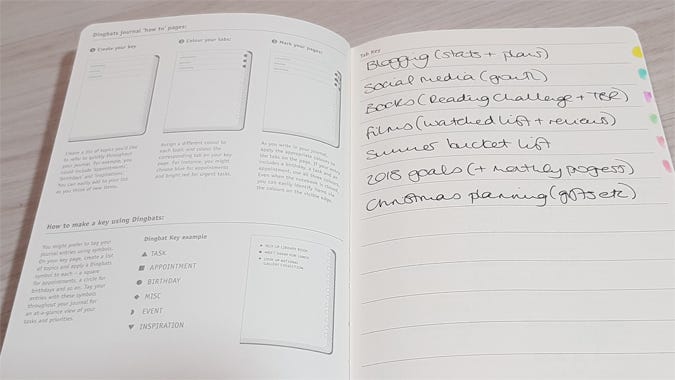 Dingbats Journal 'how to' pages:
1 Create your key
2 Colour your tabs:
3 Mark your pages:
Make a list of topics you'd
like to refer to quickly throughout
your journal. For example, you
could include 'appointments',
'birthdays' and 'inspirations'.
You can easily add to your list
as you think of new items.
Assign a different colour
to each topic and colour the
corresponding tab on your key
page. For instance, you might
choose blue for appointments
and bright red for urgent tasks.
As you write in your journal,
apply the appropriate colours to
the tabs on the page. If your page
includes a birthday, a task and an
appointment, use all three colours.
Even when the notebook is closed,
you can easily identify items by
the colours on the visible edge.
How to make a key using Dingbats:
You might prefer to tag your
journal entries using symbols.
On your key page, create a list
of topics and apply a Dingbats
symbol to each – a square
for appointments, a circle for
birthdays and so on. Tag your
entries with these symbols
throughout your journal for
an at-a-glance view of your
tasks and priorities.
Dingbat Key example
▲ TASK
■ APPOINTMENT
● BIRTHDAY
◆ MISC
◗ EVENT
♥ INSPIRATION
PICK UP LIBRARY BOOK
MEET SARAH FOR LUNCH
LOOK UP NATIONAL
GALLERY EXHIBITION
Tab Key
Blogging (stats + plans)
Social media (growth)
Books (Reading Challenge + TBR)
Films (watched list + reviews)
Summer bucket list
2018 goals (+ monthly progress)
Christmas planning (gifts etc)